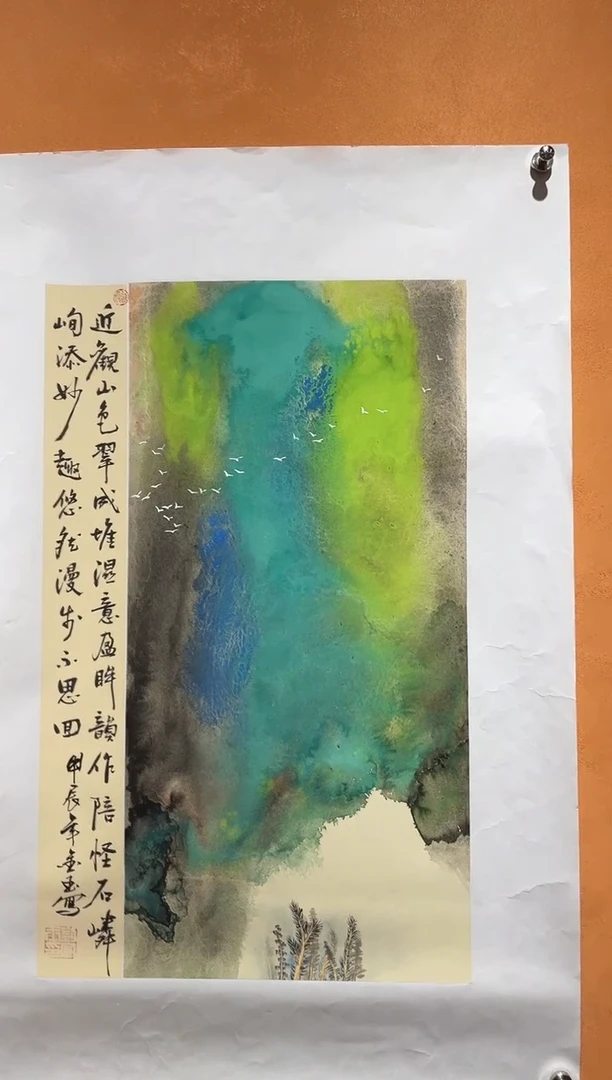 近觀山色翠成堆濕意盈眸韻作陪怪石嶙
峋添妙趣悠然漫步不思回甲辰年金玉寫